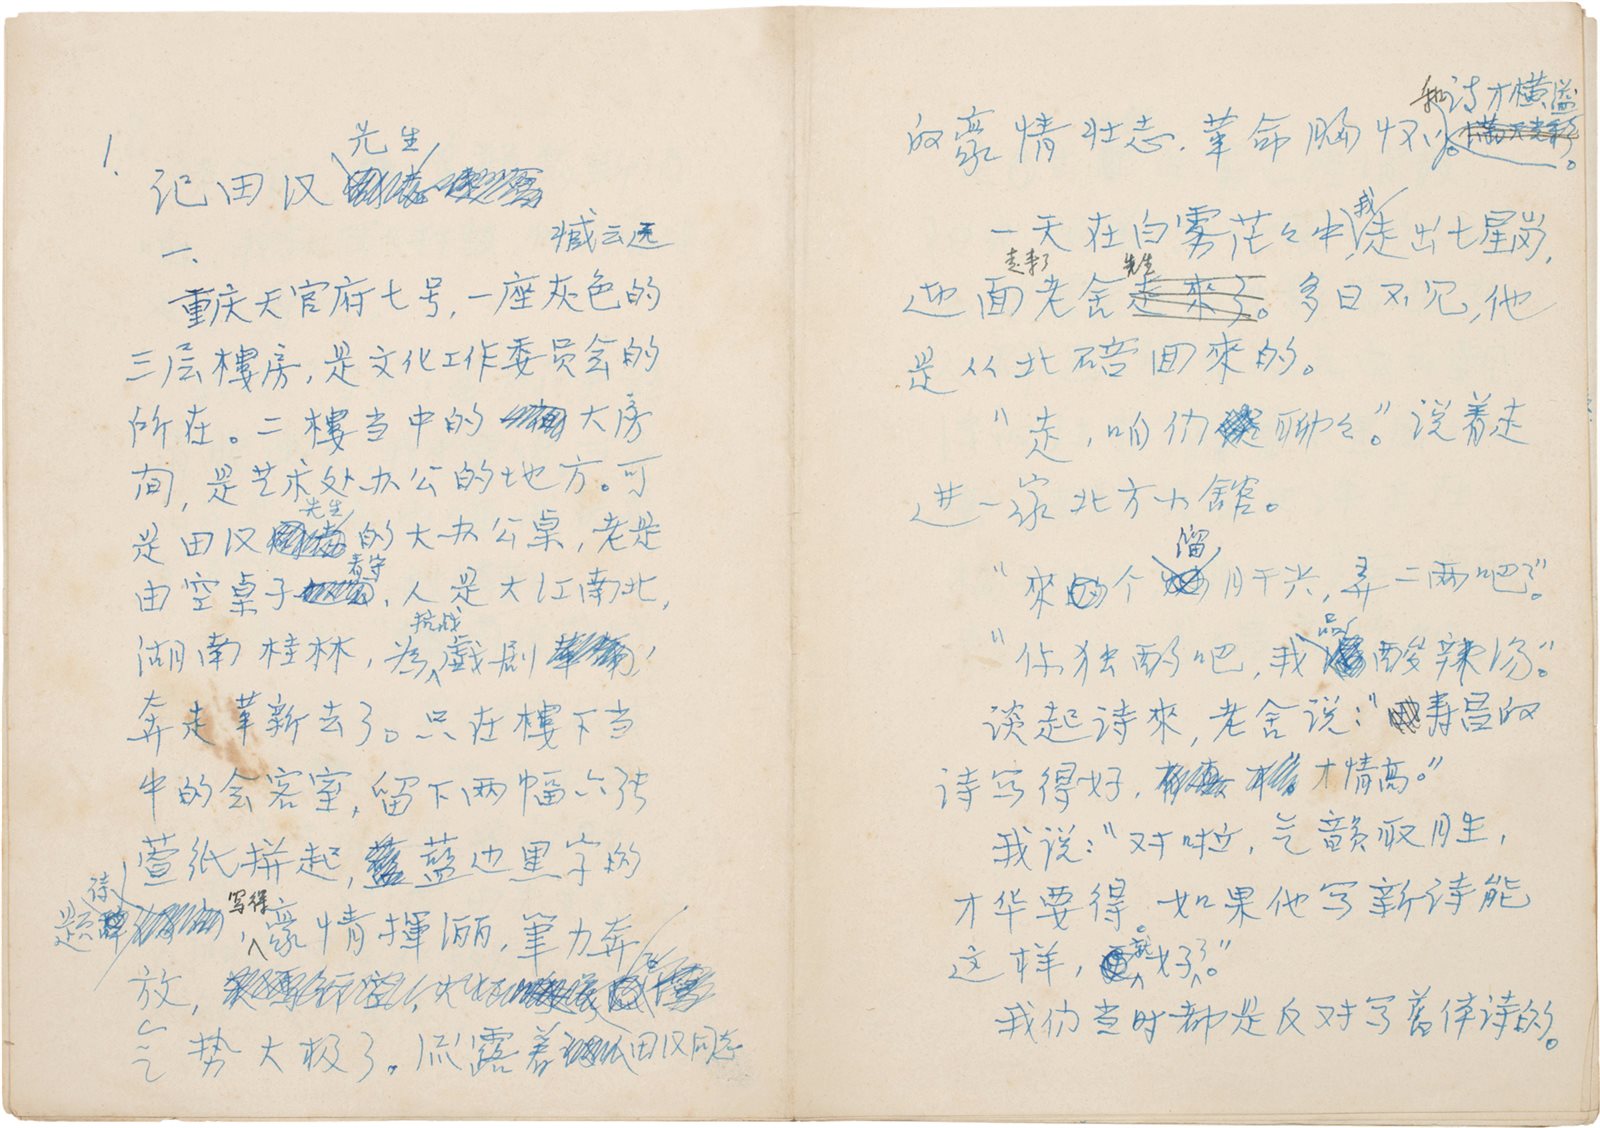 1.
先生
记田汉
臧云远
一、
重庆天官府七号，一座灰色的
三层樓房，是文化工作委员会的
所在。二樓当中的大房
间，是艺术处办公的地方。可
先生
是田汉的大办公桌，老是
看守
由空桌子，人是大江南北，
抗战
湖南桂林，为戲剧
奔走革新去了。只在樓下当
中的会客室，留下两幅六张
萱纸拼起，蓝边黑字的
诗 写得
题，豪情揮洒，筆力奔
放，
气势大极了。流露着田汉同志
和诗才横溢
的豪情壮志，革命胸怀。
我
一天在白雾茫々中，走出七星岗，
走来了 先生
迎面老舍。多日不见，他
是从北碚回來的。
“走，咱们聊々。”说着走
进一家北方小館。
溜
“來个肝尖，弄二两吧？”
品
“你独酌吧，我酸辣汤。”
谈起诗來，老舍说：“寿昌的
诗写得好，才情高。”
我说：“对啦，气韻取胜，
才华要得。如果他写新诗能
就 了
这样，好。”
我们当时都是反对写舊体诗的。